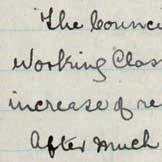 The Counci
Working Clas
increase of re
After much